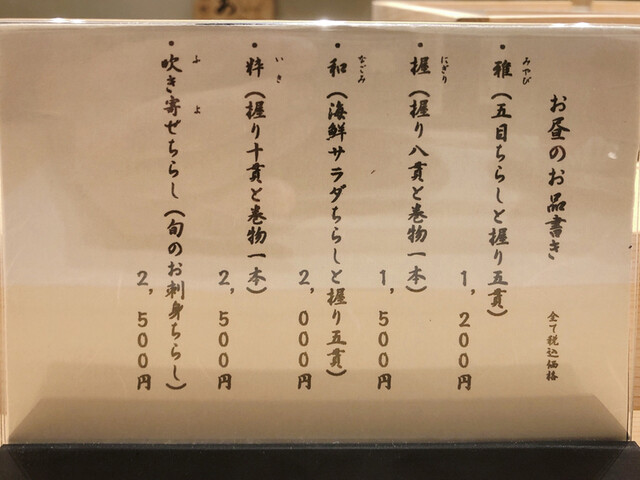 お昼のお品書き 全て税込価格
・雅（五目ちらしと握り五貫）
みやび
1,200円
・握（握り八貫と巻物一本）
にぎり
1,500円
・和（海鮮サラダちらしと握り五貫）
なごみ
2,000円
・粋（握り十貫と巻物一本）
いき
2,500円
・吹き寄せちらし（旬のお刺身ちらし）
ふ よ
2,500円